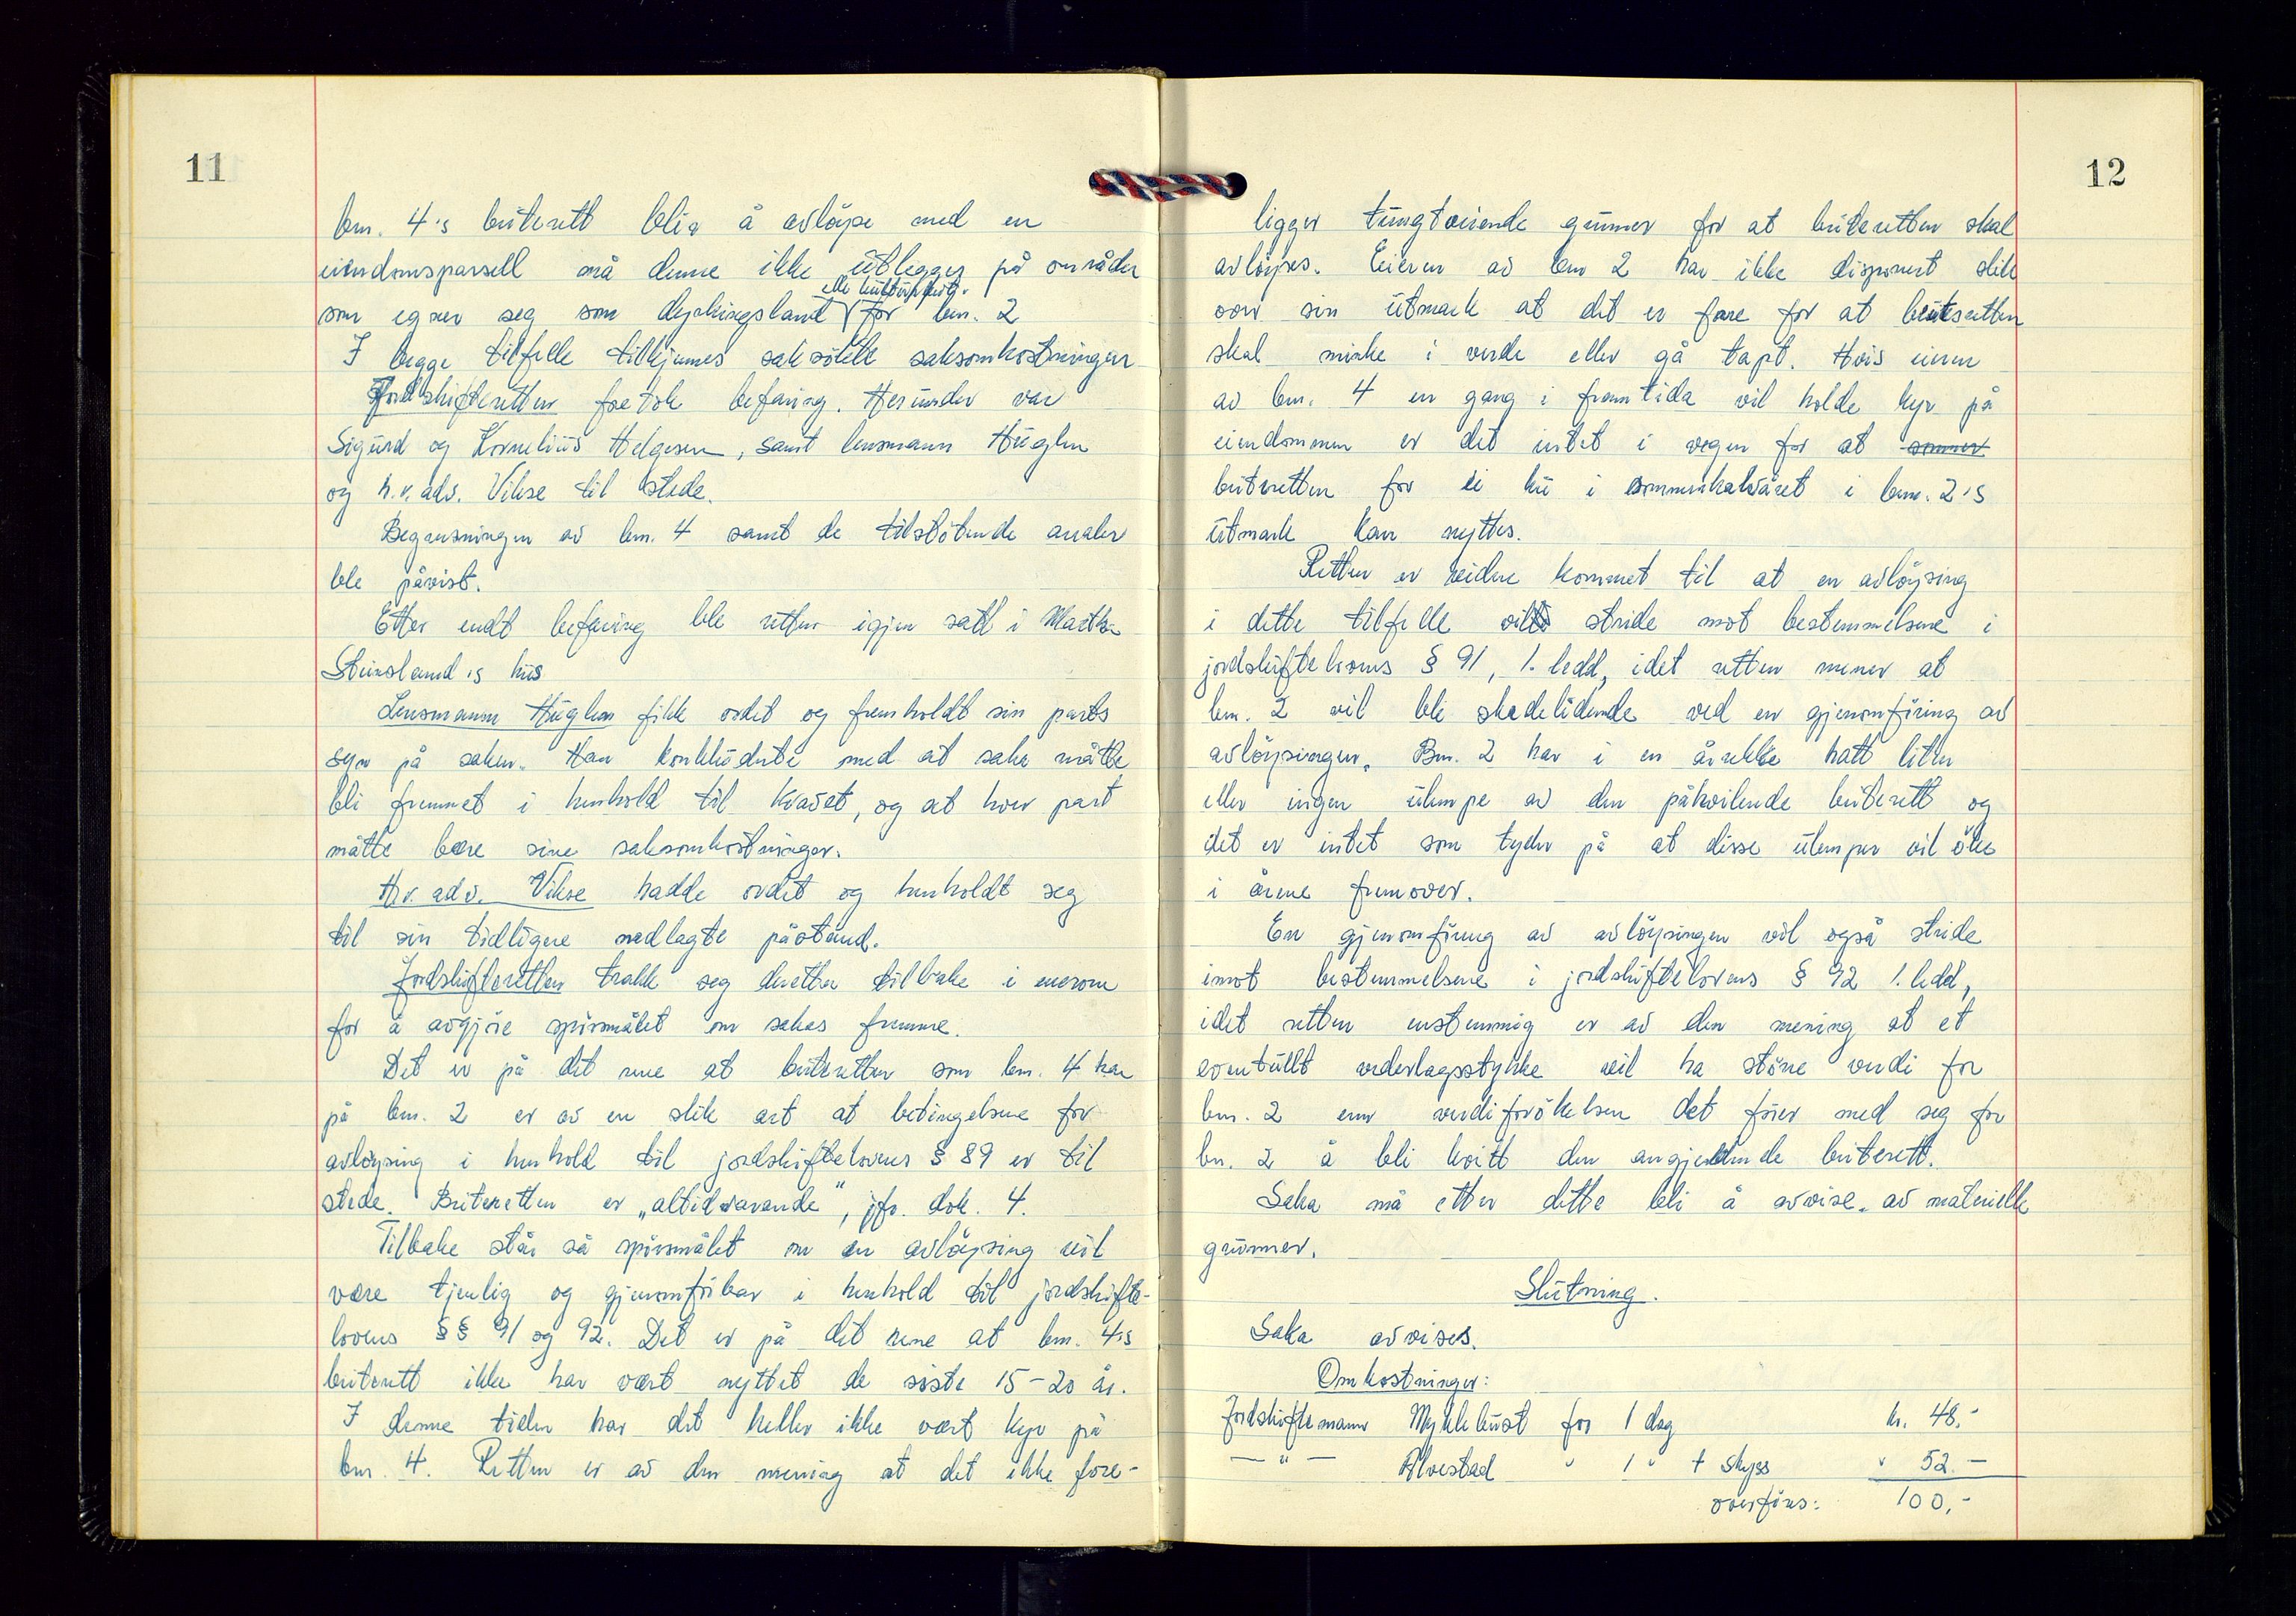 11
bnr. 4's beiterett blir å avløyse med en
eiendomsparsell må denne ikke utlegges på områder
eller kulturbeite
som egner seg som dyrkingsland for bnr. 2
I begge tilfelle tilkjennes saksökte saksomkostninger
Jordskifteretten foretok befaring. Herunder var
Sigurd og Kornelius Helgesen, samt lensmann Huglen
og h.r.adv. Vikse til stede.
Begrensningen av bnr. 4 samt de tilstötende arealer
ble påvist.
Etter endt befaring ble retten igjen satt i Martha
Steinsland's hus
Lensmann Huglen fikk ordet og fremholdt sin parts
syn på saken. Han konkluderte med at saka måtte
bli fremmet i henhold til kravet, og at hver part
måtte bære sine saksomkostninger.
H.r. adv. Vikse hadde ordet og henholdt seg
til sin tidligere nedlagte påstand.
Jordskifteretten trakk seg deretter tilbake i enerom
for å avgjöre spörsmålet om sakas fremme.
Det er på det rene at beiteretten som bnr. 4 har
på bnr. 2 er av en slik art at betingelsene for
avlöysing i henhold til jordskiftelovens § 89 er til
stede. Beiteretten er „altidvarande", jfr. dok. 4.
Tilbake står så spörsmålet om en avlöysing vil
være tjenlig og gjenomförbar i henhold til jordskifte-
lovens §§ 91 og 92. Det er på det rene at bnr. 4's
beiterett ikke har vært nyttet de siste 15-20 år.
I denne tiden har det heller ikke vært kyr på
bnr. 4. Retten er av den mening at det ikke fore-
12
ligger tungtveiende grunner for at beiteretten skal
avlöyses. Eieren av bnr 2 har ikke disponert slik
over sin utmark at det er fare for at beitesretten
skal minke i verde eller gå tapt. Hvis eieren
av bnr. 4 en gang i framtida vil holde kyr på
eiendommen er det intet i vegen for at sommer
beiteretten for ei ku i sommerhalvåret i bnr. 2's
utmark kan nyttes.
Retten er videre kommet til at en avlöysing
i dette tilfelle vil stride mot bestemmelsene i
jordskiftelovens § 91, 1. ledd, idet retten mener at
bnr. 2 vil bli skadelidende ved en gjenomföring av
avlöysingen. Bnr. 2 har i en årrekke hatt liten
eller ingen ulempe av den påhvilende beiterett og
det er intet som tyder på at disse ulemper vil öke
i årene fremover.
En gjenomföring av avlöysingen vil også stride
imot bestemmelsene i jordskiftelovens § 92 1. ledd,
idet retten enstemmig er av den mening at et
eventuellt vederlagsstykke vil ha större verdi for
bnr. 2 enn verdiforökelsen det förer med seg for
bnr. 2 å bli kvitt den angjeldende beiterett.
Saka må etter dette bli å avvise av materielle
grunner.
Slutning.
Saka avvises.
Omkostninger:
Jordskiftemann Myklebust for 1 dag kr. 48.-
— " — Alvestad " 1 " + skyss " 52.—
overföres: 100,-